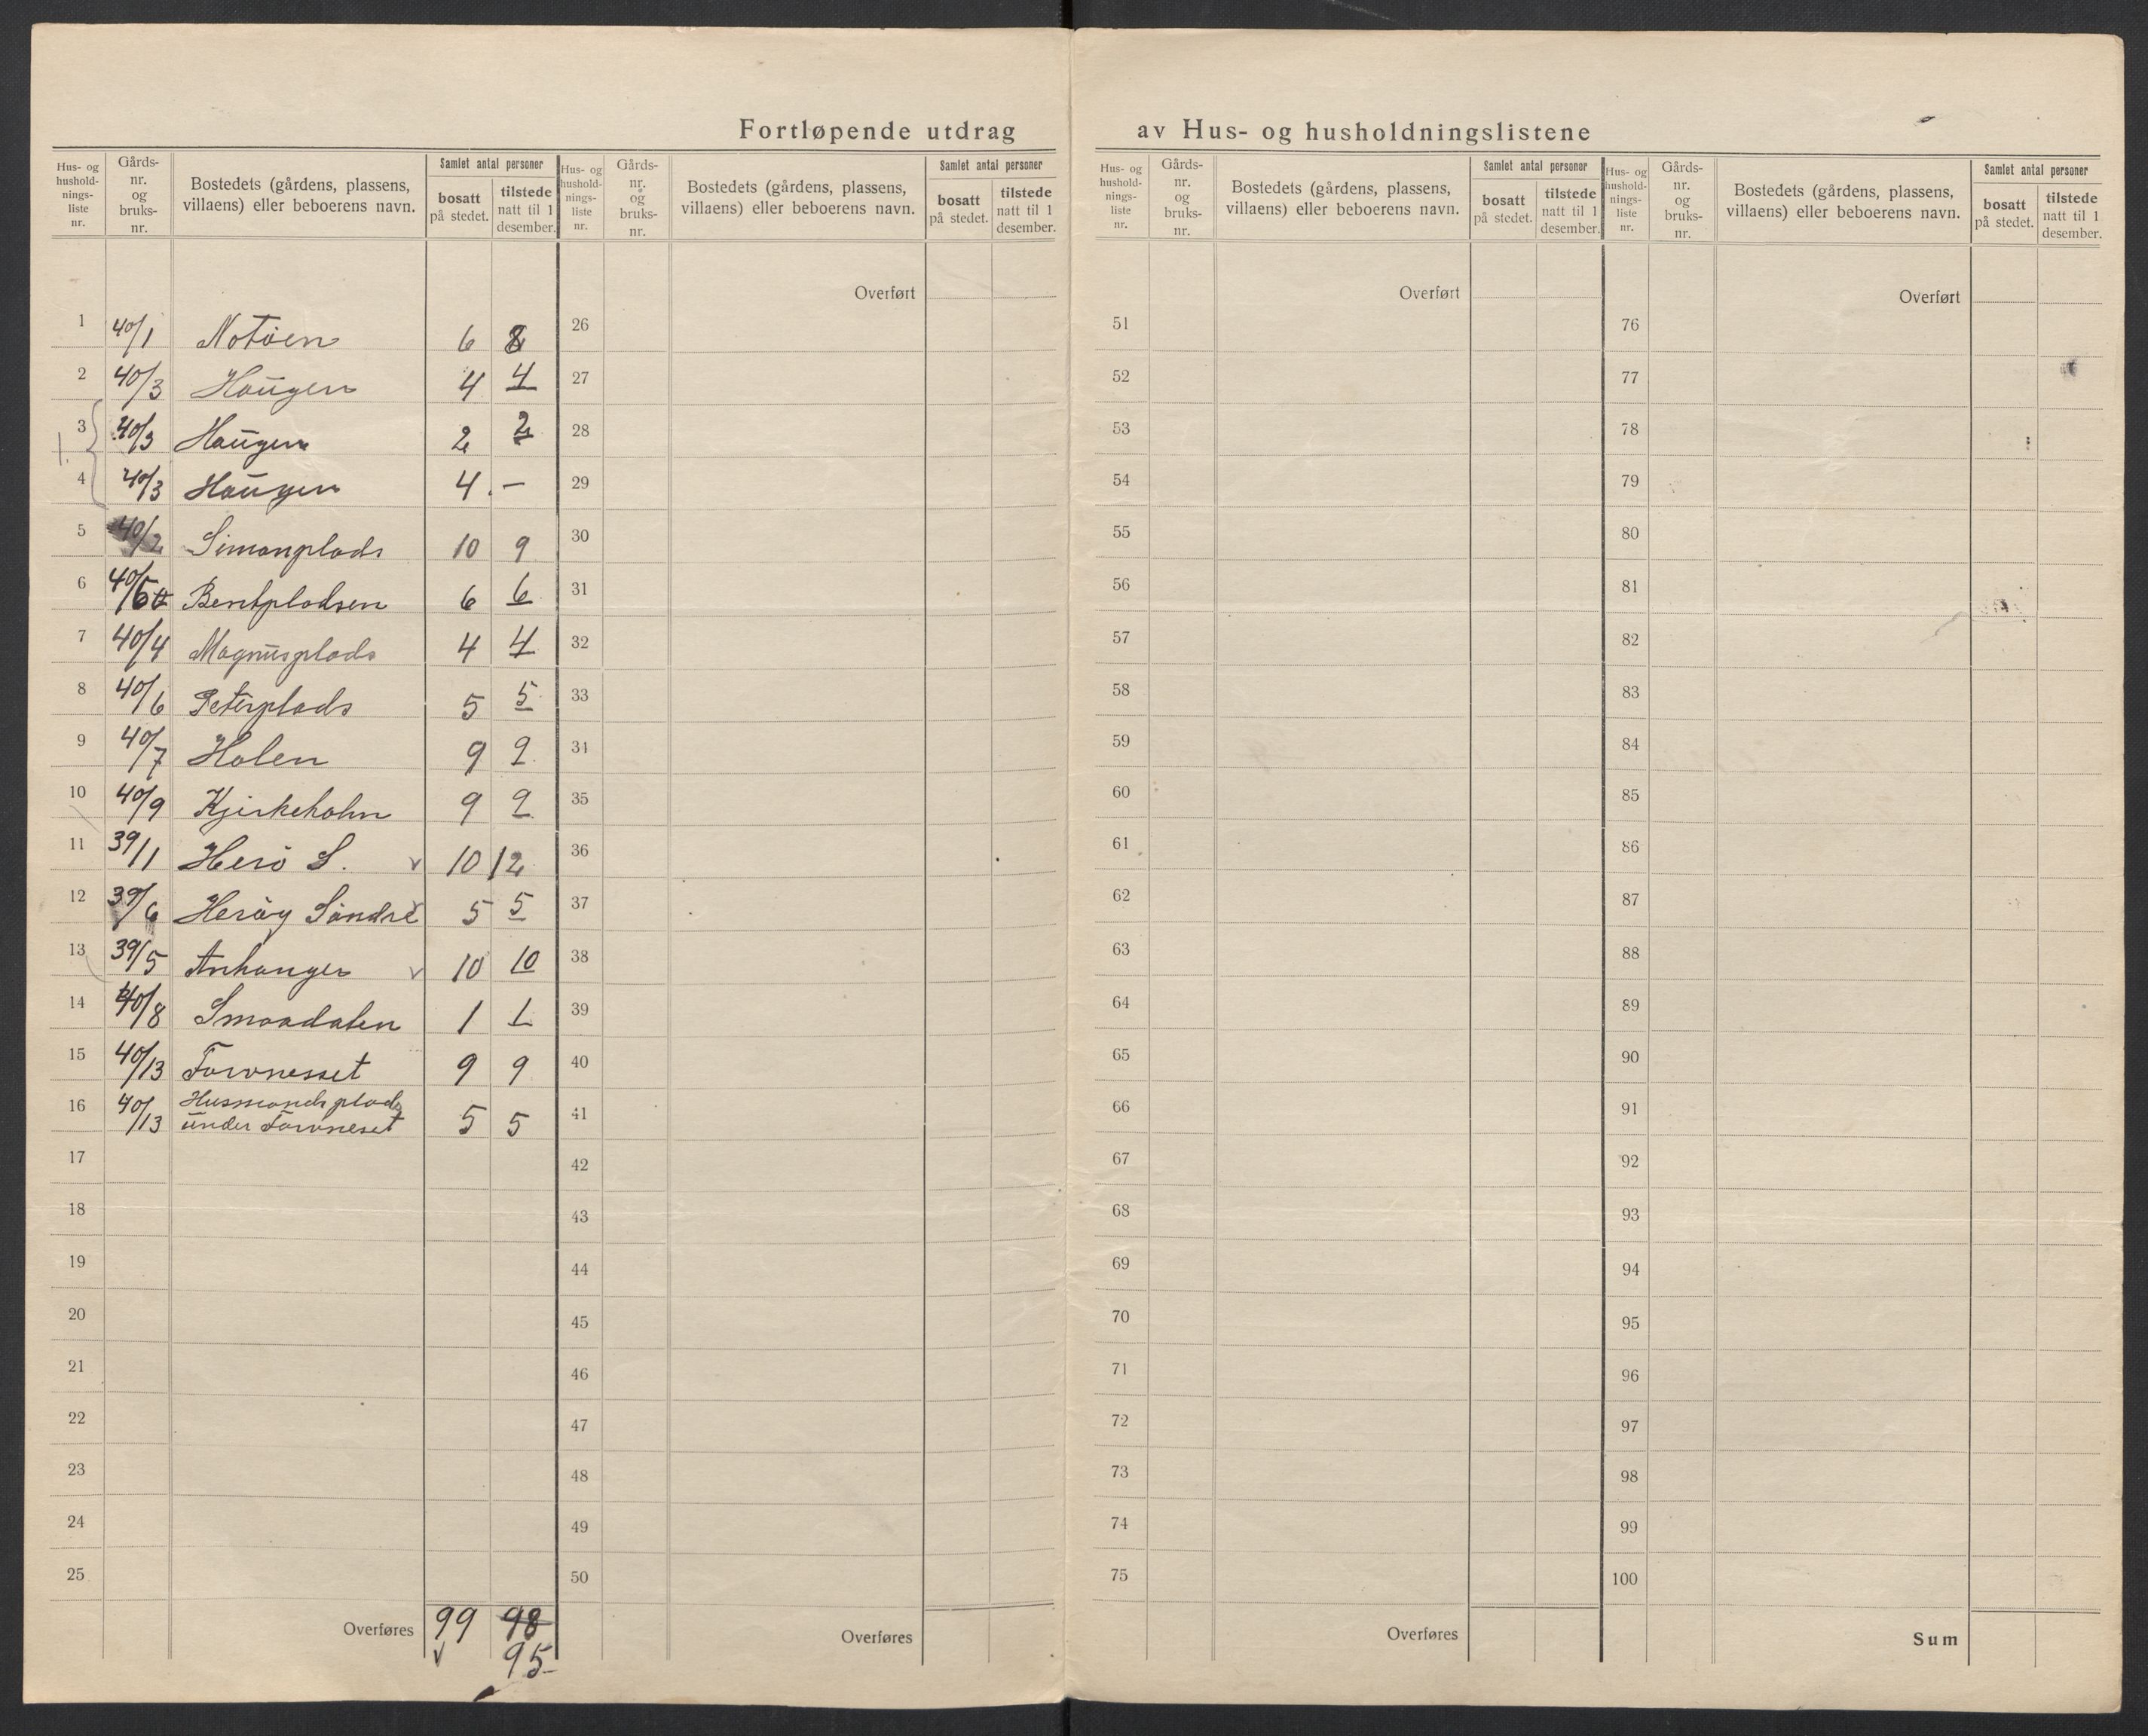 Fortløpende utdrag av Hus- og husholdningslistene
Hus- og hushold-nings-liste nr. | Gårds-nr. og bruks-nr. | Bostedets (gårdens, plassens, villaens) eller beboerens navn. | Samlet antal personer | bosatt på stedet. | tilstede natt til 1 desember.
1 40/1 Notöen 6 8
2 40/3 Haugen 4 4
3 40/3 Haugen 2 2
4 40/3 Haugen 4 . –
5 40/2 Simonplads 10 9
6 40/5 Bentpladsen 6 6
7 40/4 Magnusplads 4 4
8 40/6 Peterplads 5 5
9 40/7 Holen 9 9
10 40/9 Kjirkeholm 9 9
11 39/1 Herö S. v 10 12
12 39/6 Heröy Söndre 5 5
13 39/5 Anhanger v 10 10
14 40/8 Smaadalen 1 1
15 40/13 Forvnesset 9 9
16 40/13 Husmands plads under Forvneset 5 5
17
18
19
20
21
22
23
24
25
Overføres 99 98
v 95
Hus- og hushold-nings-liste nr. | Gårds-nr. og bruks-nr. | Bostedets (gårdens, plassens, villaens) eller beboerens navn. | Samlet antal personer | bosatt på stedet. | tilstede natt til 1 desember.
Overført
26
27
28
29
30
31
32
33
34
35
36
37
38
39
40
41
42
43
44
45
46
47
48
49
50
Overføres
Hus- og hushold-nings-liste nr. | Gårds-nr. og bruks-nr. | Bostedets (gårdens, plassens, villaens) eller beboerens navn. | Samlet antal personer | bosatt på stedet. | tilstede natt til 1 desember.
Overført
51
52
53
54
55
56
57
58
59
60
61
62
63
64
65
66
67
68
69
70
71
72
73
74
75
Overføres
Hus- og hushold-nings-liste nr. | Gårds-nr. og bruks-nr. | Bostedets (gårdens, plassens, villaens) eller beboerens navn. | Samlet antal personer | bosatt på stedet. | tilstede natt til 1 desember.
Overført
76
77
78
79
80
81
82
83
84
85
86
87
88
89
90
91
92
93
94
95
96
97
98
99
100
Sum